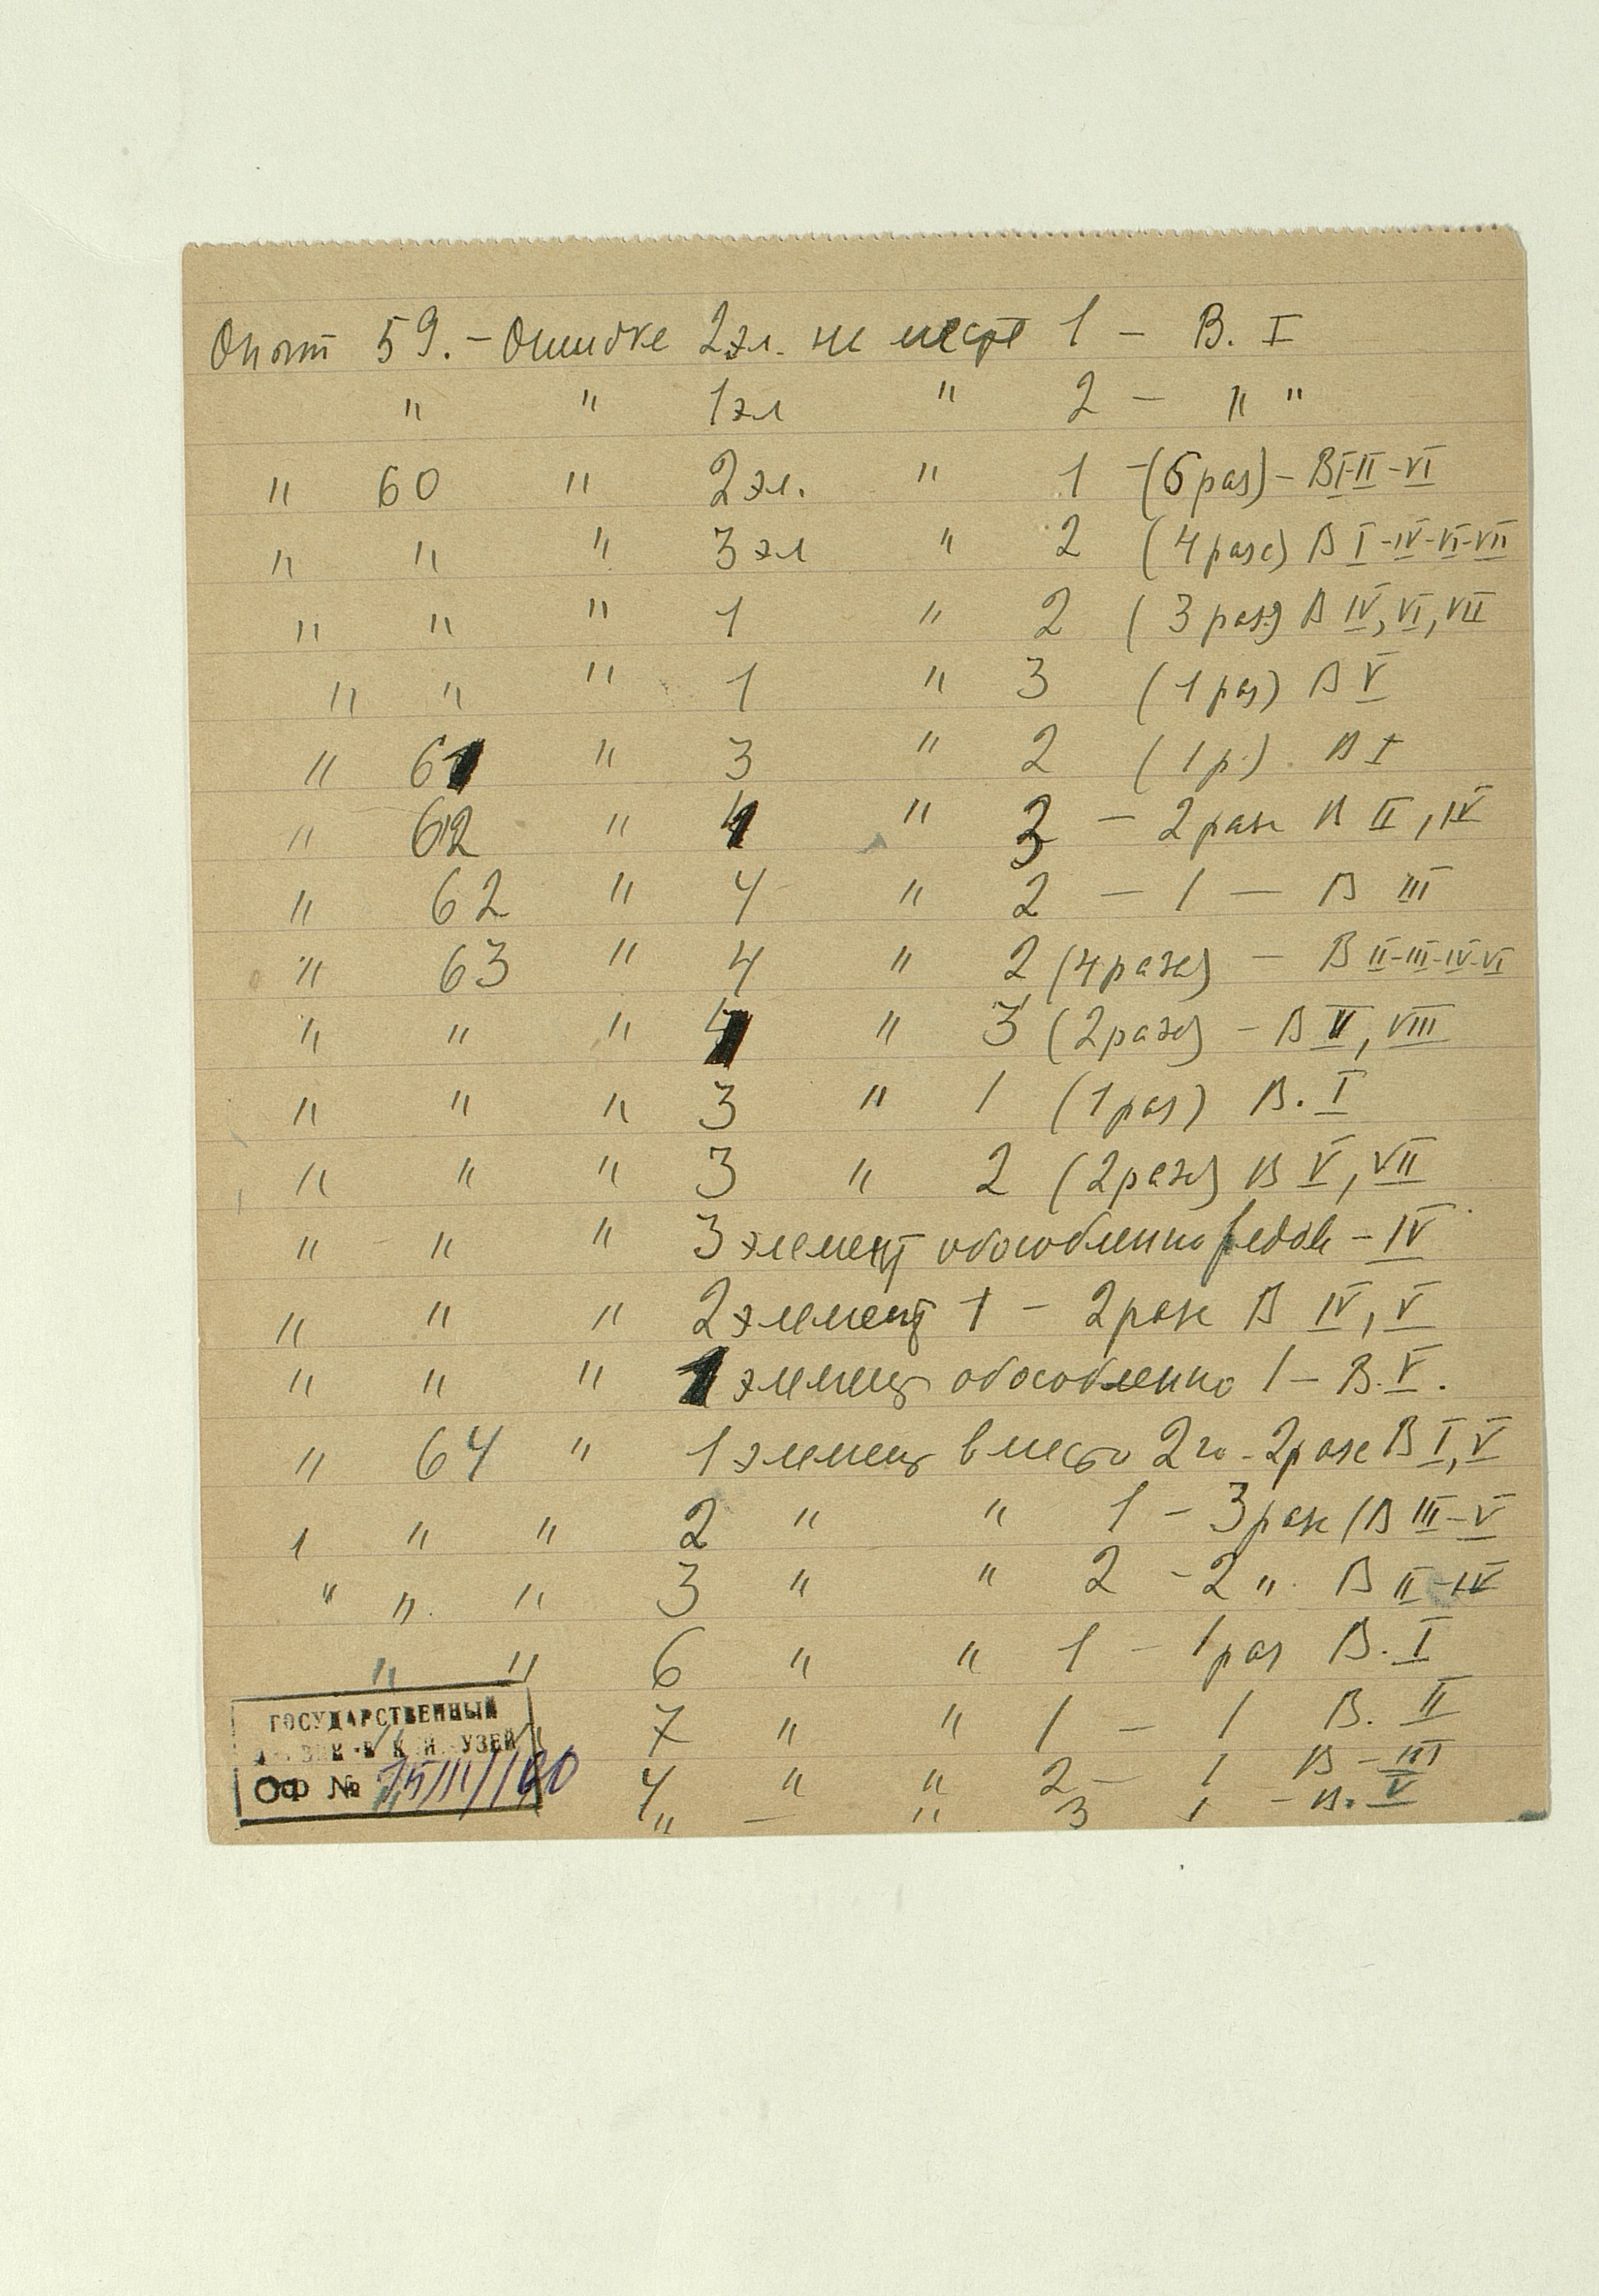 Опыт 59. - Ошибка 2 эл. на месте 1 - В. I
" " 1 эл " 2 - " "
" 60 " 2 эл. " 1 - (5 раз) - В I-II-VI
" " " 3 эл " 2 (4 раза) В I-IV-VI-VII
" " " 1 " 2 (3 раза) В IV, VI, VII
" " " 1 " 3 (1 раз) В V
" 61 " 3 " 2 (1 р.) В I
" 62 " 4 " 3 - 2 раза В II, IV
" 62 " 4 " 2 - 1 - В III
" 63 " 4 " 2 (4 раза) - В II-III-IV-VI
" " " 4 " 3 (2 раза) - В V, VIII
" " " 3 " 1 (1 раз) В. I
" " " 3 " 2 (2 раза) В V, VII
" " " 3 элемент обособленно - IV
" " " 2 элемент 1 - 2 раза В IV, V
" " " 1 элемент обособленно 1 - В. V.
" 64 " 1 элемент вместо 2го - 2 раза В I, V
" " " 2 " " 1 - 3 раза (В III-V
" " " 3 " " 2 - 2 " В II-IV
" " 6 " " 1 - 1 раз В. I
" " 7 " " 1 - 1 В. II
4 " " 2 - 1 В - III
" - " 3 1 - В. V
ГОСУДАРСТВЕННЫЙ
ОФ №